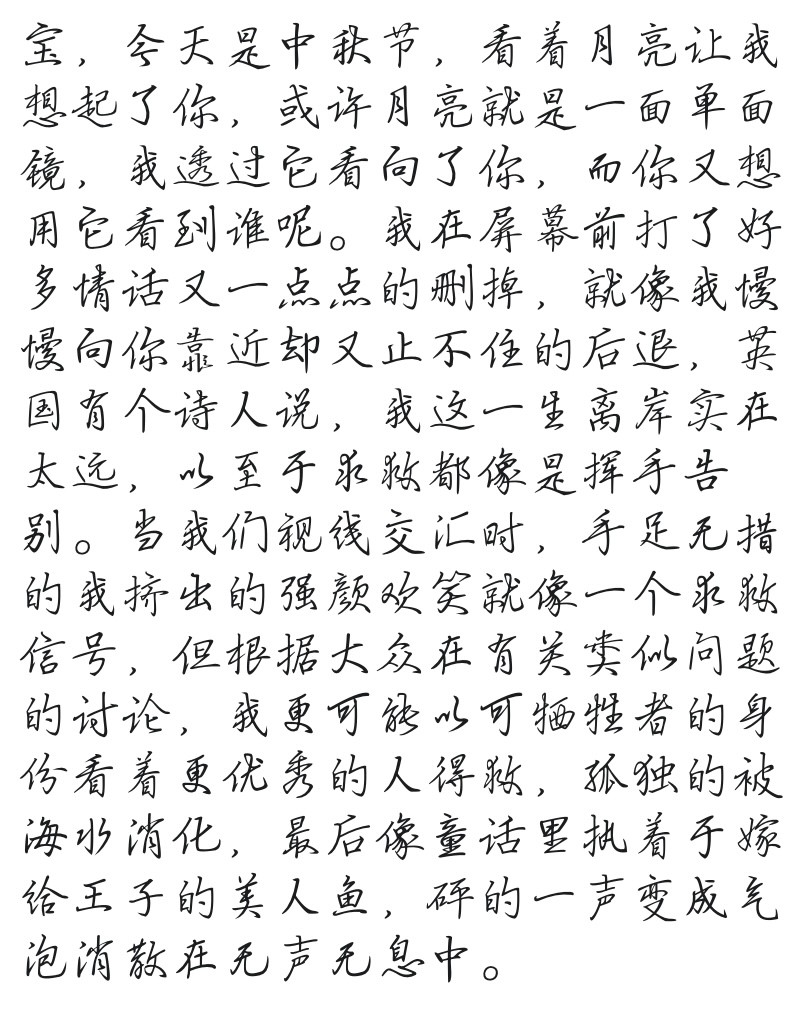 宝，今天是中秋节，看着月亮让我
想起了你，或许月亮就是一面单面
镜，我透过它看向了你，而你又想
用它看到谁呢。我在屏幕前打了好
多情话又一点点的删掉，就像我慢
慢向你靠近却又止不住的后退，英
国有个诗人说，我这一生离岸实在
太远，以至于求救都像是挥手告
别。当我们视线交汇时，手足无措
的我挤出的强颜欢笑就像一个求救
信号，但根据大众在有关类似问题
的讨论，我更可能以可牺牲者的身
份看着更优秀的人得救，孤独的被
海水消化，最后像童话里执着于嫁
给王子的美人鱼，砰的一声变成气
泡消散在无声无息中。